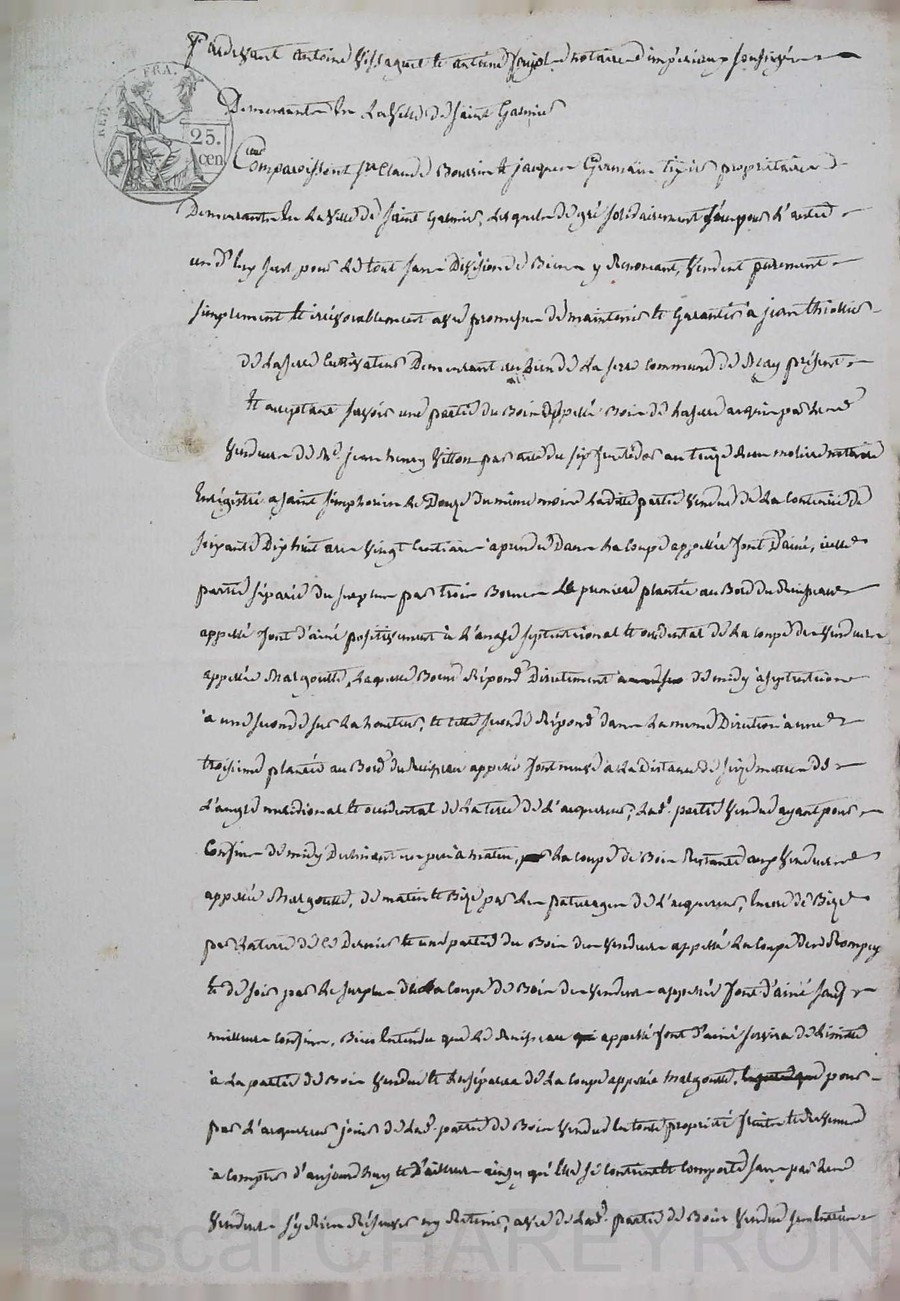 Pardevant Antoine Vissaguet et antoine Pujol notaires impériaux soussignés
REP. FRA.
25.
cen
Demeurants en La ville de saint Galmier
Comparoissent Srs Claude Bourrin et jacques Germain propriétaires
Demeurants en La ville de saint Galmier, Lesquels de gré solidairement L'un pour L'autre
un d'Eux seul pour Le tout sans Division de Biens y Renoncant, Vendent purement
simplement et irrévocablement avec promesse de maintenir et Garantir à jean thiollier
de Laserre Cultivateur Demeurant au Lieu de La serre commune de present
Et acceptant savoir une partie du Bois appellé Bois de Laserre acquis par Les
Vendeurs de Mr. jean henry Villon par acte du six an treize Reçu notaire
Enregistré a saint simphorien Le Douze du même mois Ladite partie Vendue de La Contenue de
soixante Dix huit ares Vingt Centiares à prendre Dans La coupe appellée font d'ainé, icelle
partie séparée du surplus par trois Bornes La premiere plantée au Bord du Ruisseau
appellé font d'ainé positivement à L'angle septentrional et occidental de La coupe des Vendeurs
appellée Malgoutte, Laquelle Borne Répond Directement de midy à septentrion
à une seconde sur La hauteur, et cette seconde Répond dans La meme Direction à une
troisieme plantée au Bord du Ruisseau appellé font à La Distance de seize metres de
L'angle méridional et occidental de La terre de L'acquereur; Lad. partie Vendue ayant pour
Confins de midy Declinant un peu à matin, La coupe de Bois Restante aux Vendeurs
appellée Malgoutte, de matin et Bize par Les paturages de L'acquereur, Encore de Bize
par La terre de ce Dernier et une partie du Bois des Vendeurs appellé La coupe
et de soir par Le surplus de La coupe de Bois des Vendeurs appellée font d'ainé sauf
meilleurs confins, Bien Entendu que Le Ruisseau appellé font d'ainé servira de Limite
à La partie de Bois Vendue et La séparera de La coupe appellée Malgoutte, pour
par L'acquereur jouir de Lad. partie de Bois Vendue En toute propriété
à compter d'aujourd'huy et D'ailleurs ainsy qu'Elle se contient et comporte sans par Les
Vendeurs s'y Rien Réserver ny Retenir, avec de Lad. partie de Bois Vendue
Pascal CHAREYRON